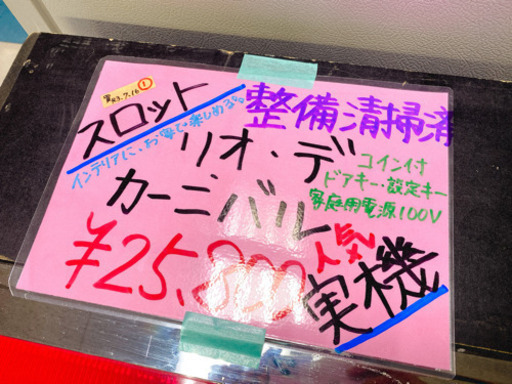 買R3.7.16 ①
スロット
整備清掃済
インテリアに、お家で楽しめる
リオ・デ
カーニバル
コイン付
ドアキー・設定キー
家庭用電源100V
¥25,800
人気
実機